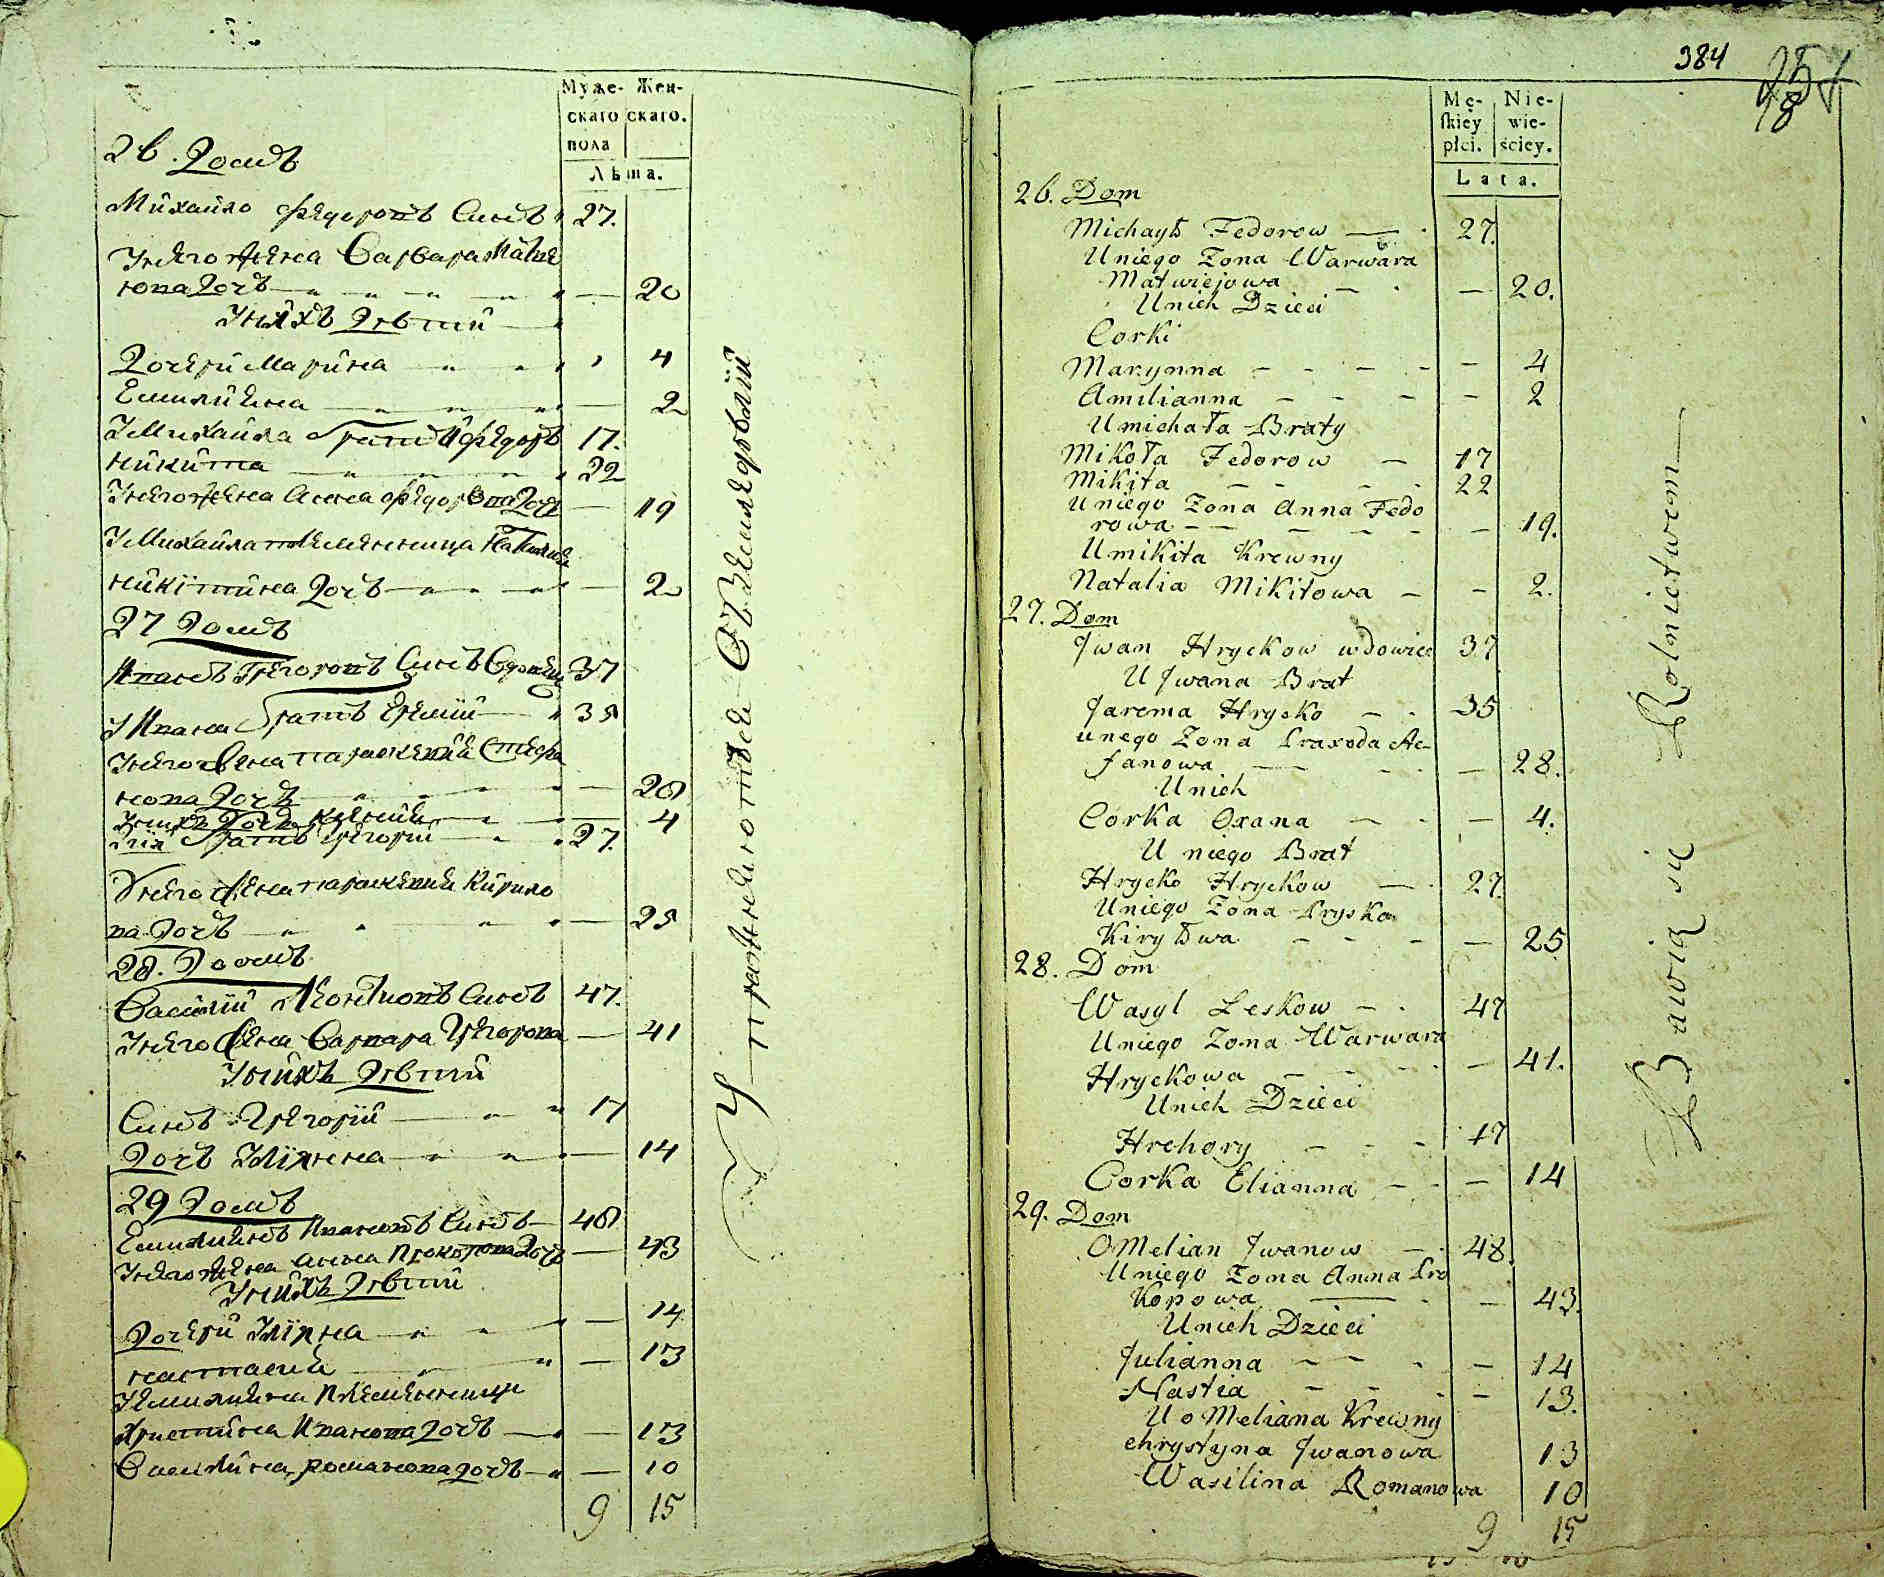 Муже- Жен-
скаго скаго.
пола
Лѣта.
26. Домъ
Михайло Федоровъ Синъ 27.
Унего жена Варвара Матве
ювна Дочъ 20
Унихъ Дѣтти
Дочери Марина 4
Емилияна 2
У Михаила Братъ Федоръ 17.
Никита 22
Унего жена Анна Федоровна Дочъ 19
У Михаила племенница Наталия
Никитина Дочъ 2
27 Домъ
Иванъ Григоровъ Синъ 37
У Ивана Братъ Еремий 35
Унего жена Параскевия Стефа
нова Дочъ 28
Унихъ Дочъ 4
Братъ Григорий 27.
Унего жена Параскевия Кирило
ва Дочъ 25
28. Домъ
Василий Леонтиовъ Синъ 47.
Унего жена Варвара Григорова 41
Унихъ Дѣтти
Синъ Григорий 17
Дочъ Улиянна 14
29 Домъ
Емилиянъ Ивановъ Синъ 48
Унего жена Анна Прокопова Дочъ 43
Унихъ Дѣтти
Дочери Улияна 14
Настасия 13
У Емилияна Племенници
Христина Иванова Дочъ 13
Василина Романова Дочъ 10
9 15
Упражняются въ земледѣлии
384
Mę- Nie-
skiey wie-
płci. ściey.
Lata.
26. Dom
Michayło Fedorow 27.
Uniego Zona Warwara
Matwiejowa 20.
Unich Dzieci
Corki
Marynna 4
Amilianna 2
Umichała Braty
Mikoła Fedorow 17
Mikita 22
Uniego Zona Anna Fedo
rowa 19.
Umikita Krewny
Natalia Mikitowa 2.
27. Dom
Jwan Hryckow wdowiec 37
U Jwana Brat
Jarema Hrycko 35
unego Zona Praxeda Ste
fanowa 28.
Unich
Corka Oxana 4.
U niego Brat
Hrycko Hryckow 27.
Uniego Zona Pryska
Kiryłwa 25
28. Dom
Wasyl Leskow 47
Uniego Zona Warwara
Hryckowa 41.
Unich Dzieci
Hrehory 17
Corka Elianna 14
29. Dom
OMelian Jwanow 48
Uniego Zona Anna Pro
Kopowa 43.
Unich Dzieci
Julianna 14
Nastia 13.
U oMeliana Krewny
chrystyna Jwanowa 13
Wasilina Romanowa 10
9 15
Bawią się Rolnictwem